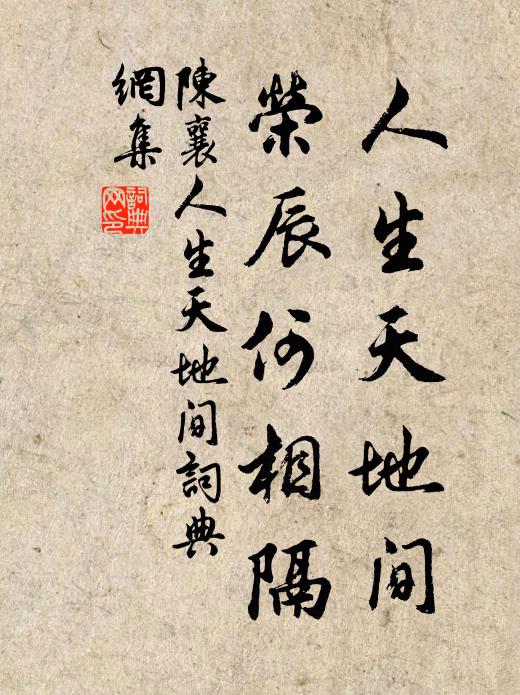 人生天地间
榮辰何相隔
陳襄人生天地间詞典
網集
詞典
网印